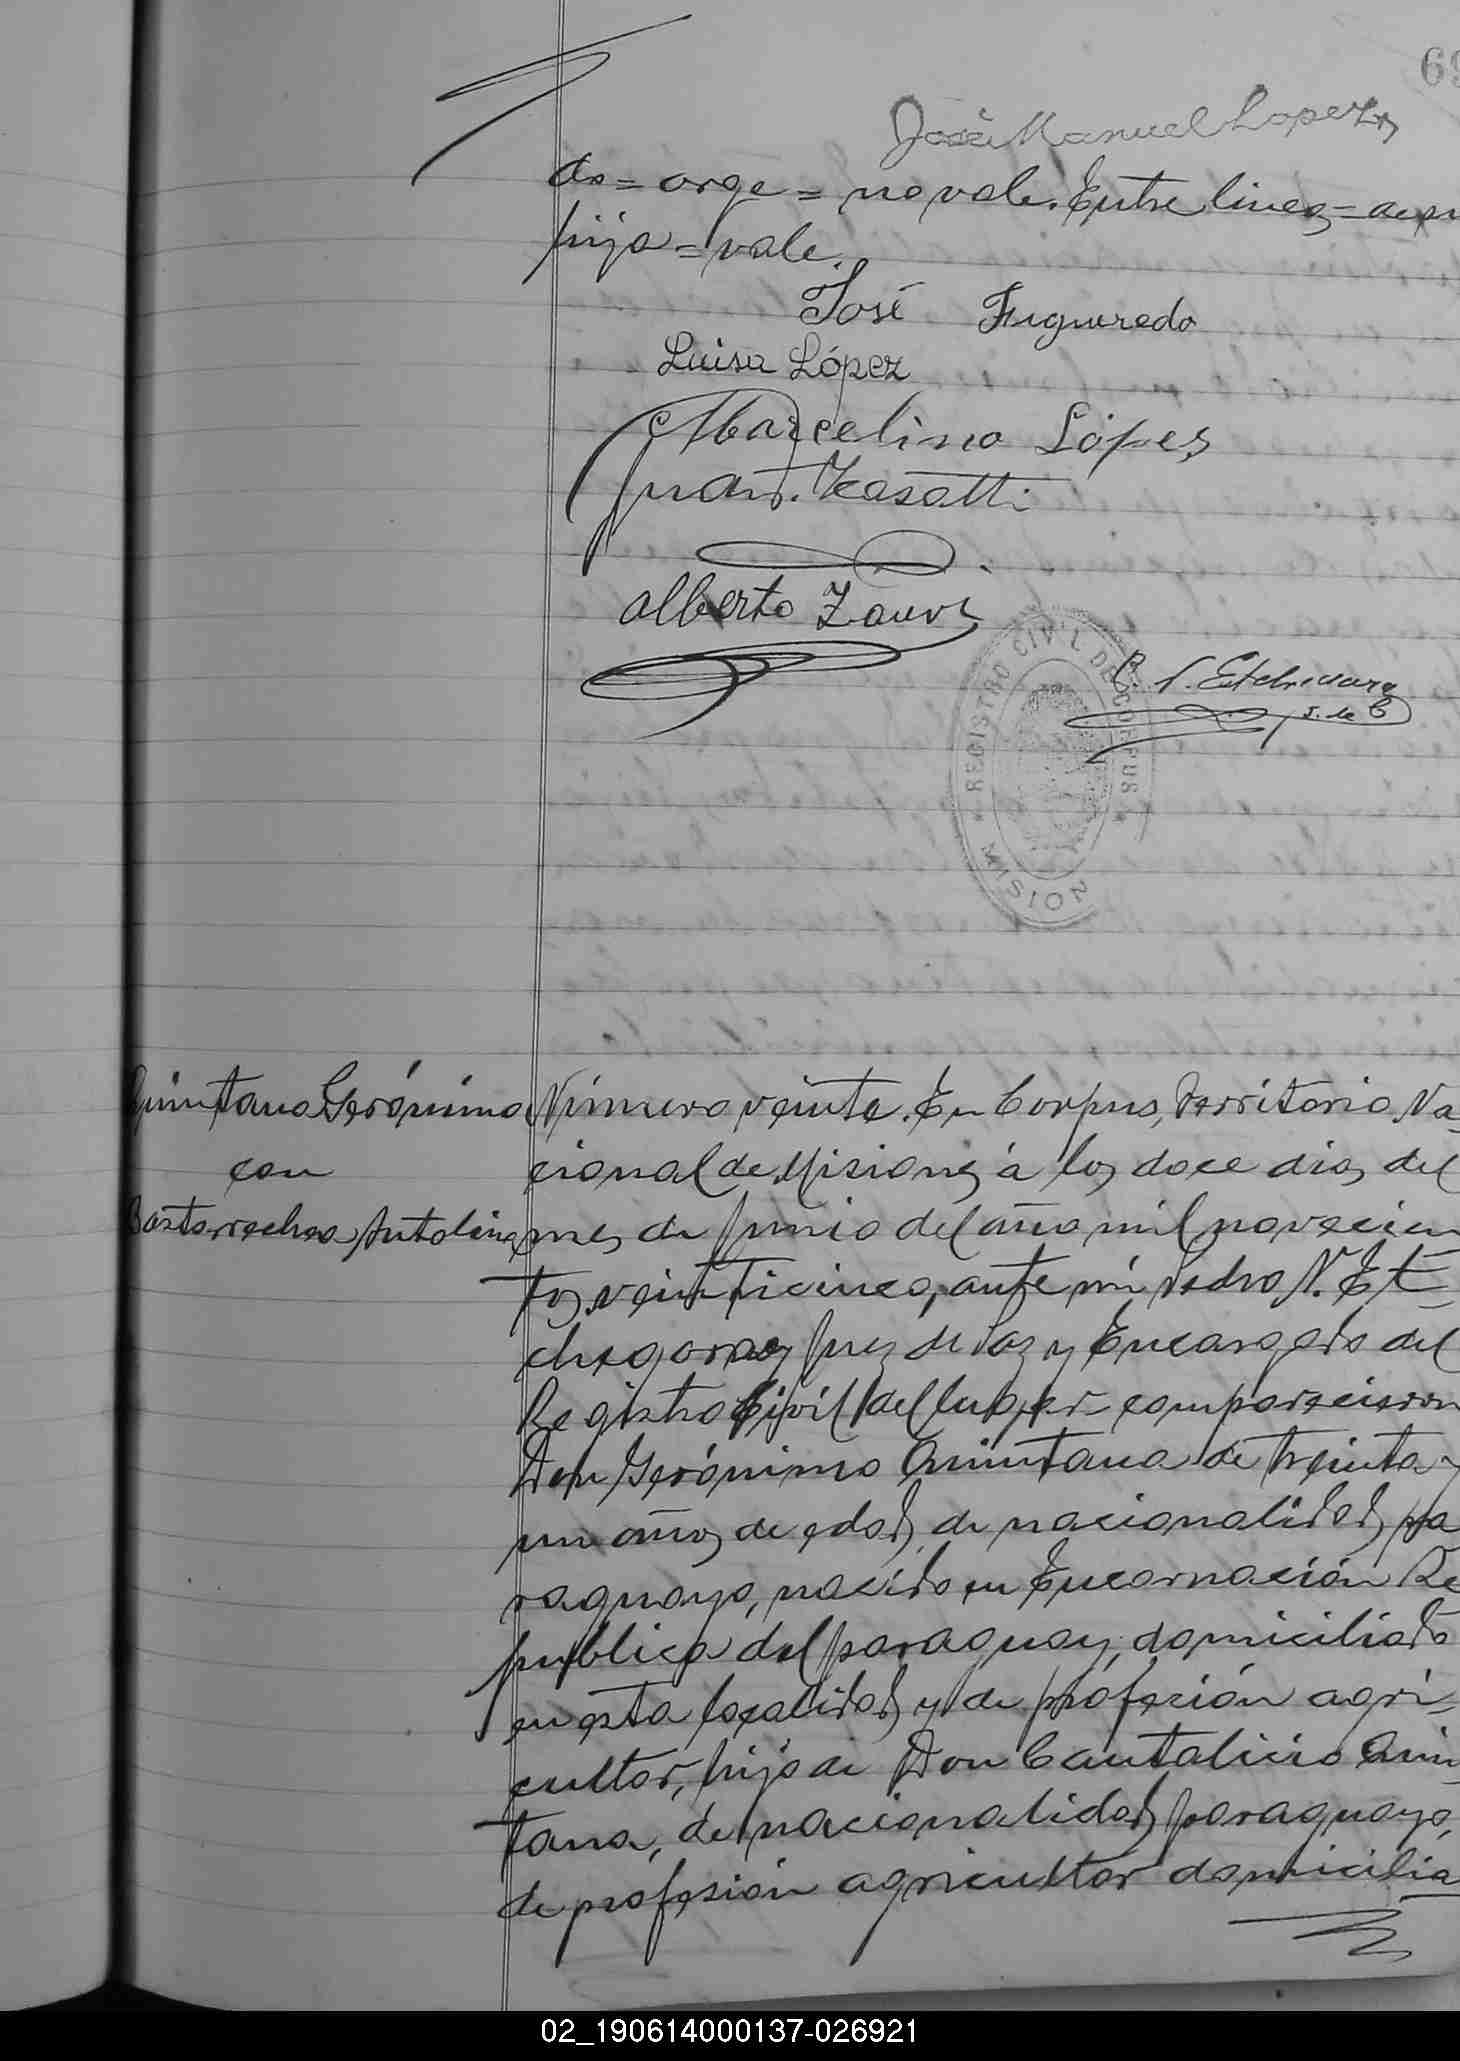 69
José Manuel Lopez
do = orge = no vale. Entre lineas = de su
hija = vale.
José Figueredo
Luisa López
Marcelino López
Alberto
P. N. Etchegaray
J. de P.
REGISTRO CIVIL DE CORPUS
MISION
Quintana Gerónimo
con
Bastarrechea Antolina
Número veinte. En Corpus, Territorio Na-
cional de Misiones á los doce dias del
mes de Junio del año mil novecien
tos veinticinco, ante mi Pedro N. Et-
chegaray Juez de Paz y Encargado del
Registro Civil del lugar comparecieron
Don Gerónimo Quintana de treinta y
un años de edad, de nacionalidad pa
raguaya, nacido en Encarnación Re
publica del paraguay, domiciliado
en esta localidad y de profesión agri-
cultor, hijo de Don Cantalicio Quin-
tana, de nacionalidad paraguaya,
de profesión agricultor domicilia
02_190614000137-026921